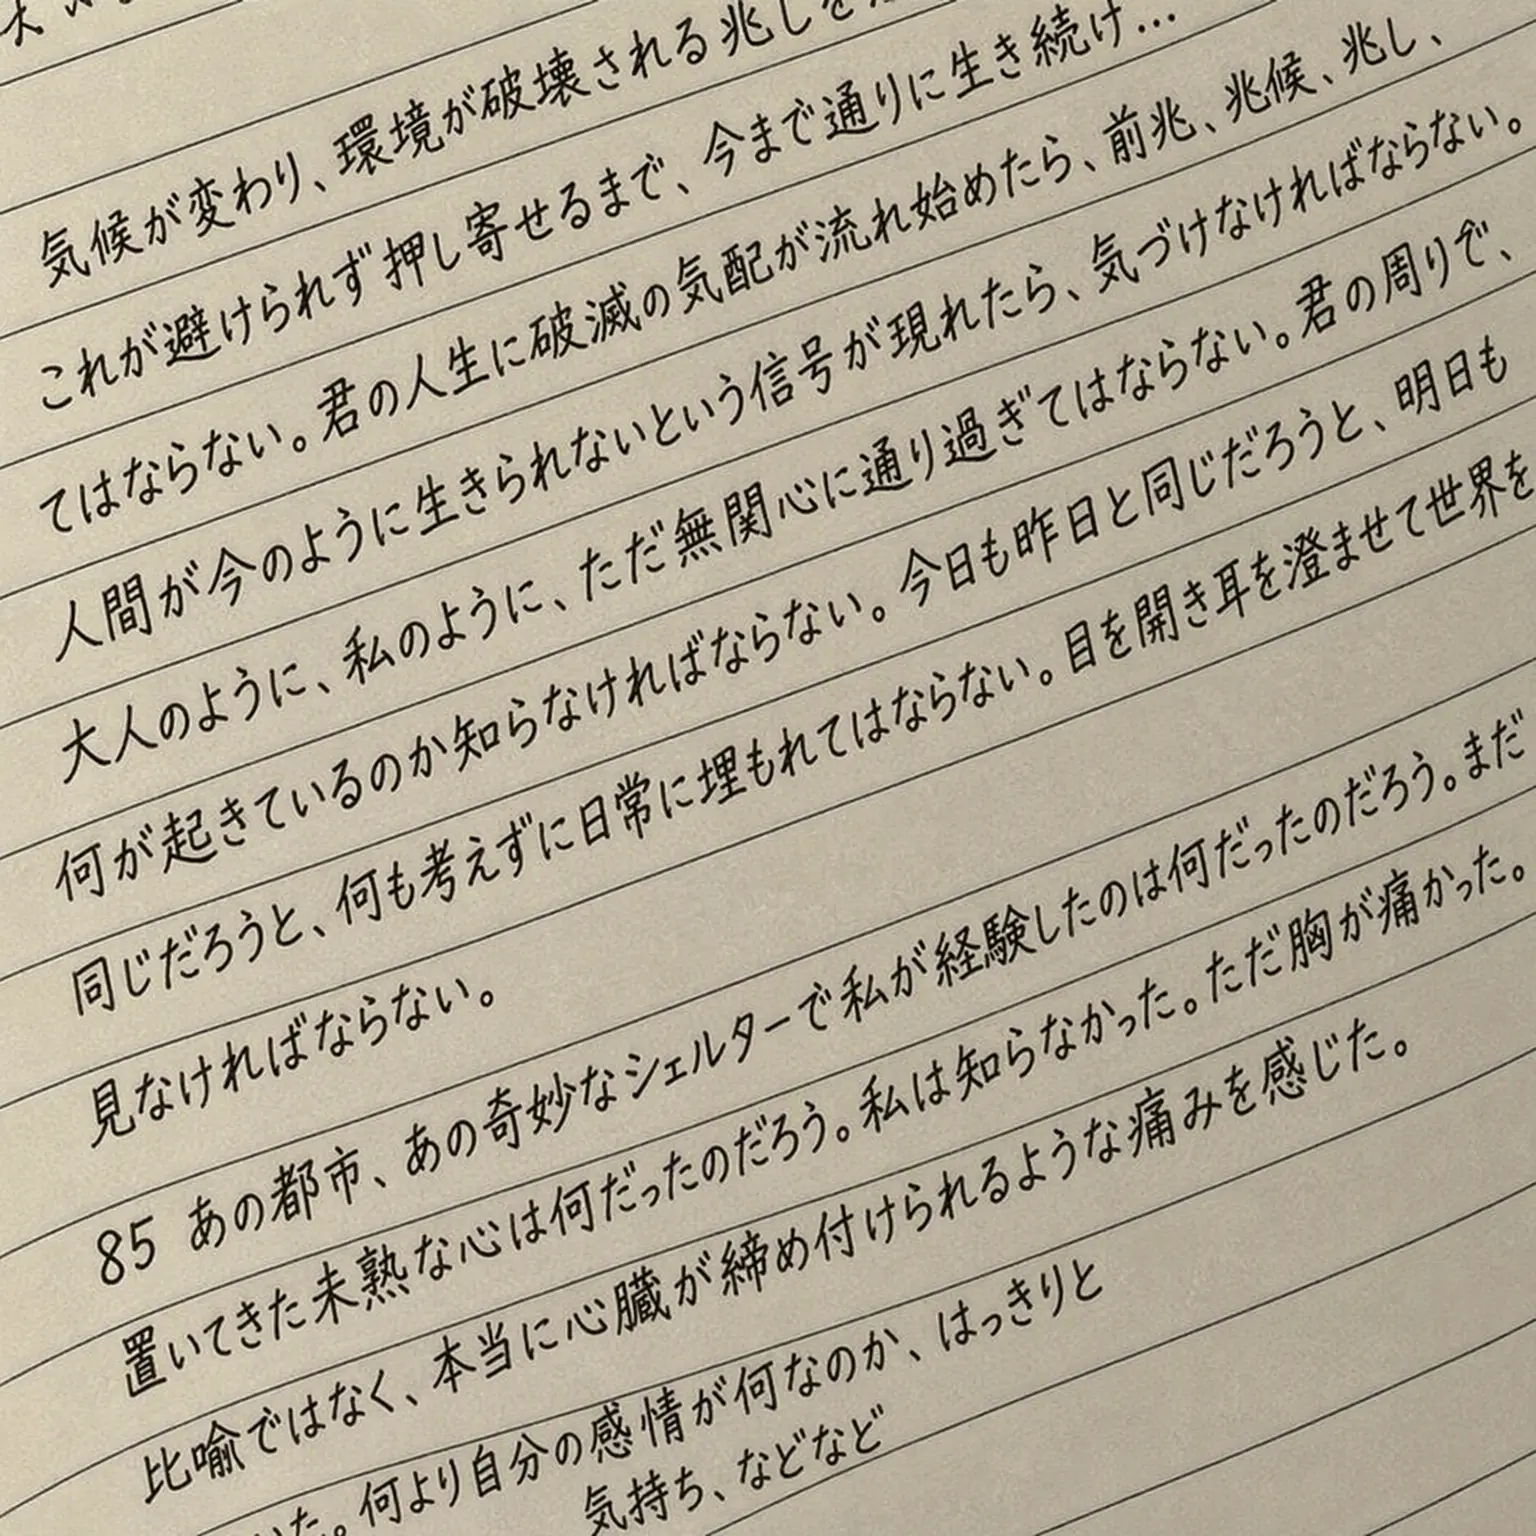 気候が変わり、環境が破壊される兆しを
これが避けられず押し寄せるまで、今まで通りに生き続け…
てはならない。君の人生に破滅の気配が流れ始めたら、前兆、兆候、兆し、
人間が今のように生きられないという信号が現れたら、気づけなければならない。
大人のように、私のように、ただ無関心に通り過ぎてはならない。君の周りで、
何が起きているのか知らなければならない。今日も昨日と同じだろうと、明日も
同じだろうと、何も考えずに日常に埋もれてはならない。目を開き耳を澄ませて世界を
見なければならない。
85 あの都市、あの奇妙なシェルターで私が経験したのは何だったのだろう。まだ
置いてきた未熟な心は何だったのだろう。私は知らなかった。ただ胸が痛かった。
比喩ではなく、本当に心臓が締め付けられるような痛みを感じた。
いた。何より自分の感情が何なのか、はっきりと
気持ち、などなど